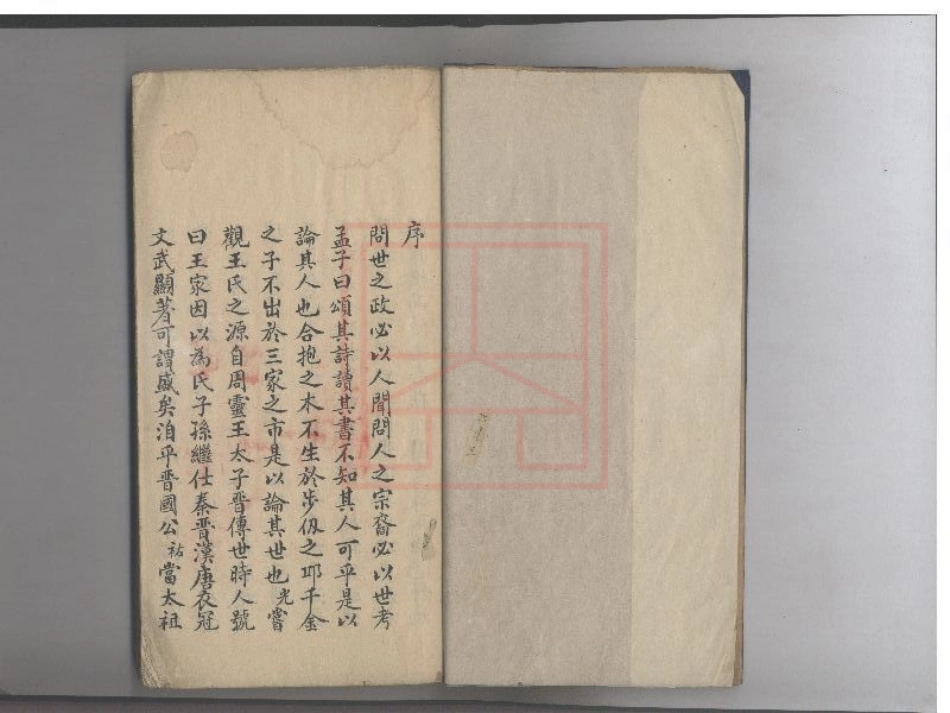 序
問世之政必以人聞問人之宗裔必以世考
孟子曰頌其詩讀其書不知其人可乎是以
論其人也合抱之木不生於步仭之邱千金
之子不出於三家之市是以論其世也光嘗
觀王氏之源自周靈王太子晋傳世時人號
曰王家因以為氏子孫繼仕秦晋漢唐衣冠
文武顯著可謂盛矣洎乎晋國公祐當太祖